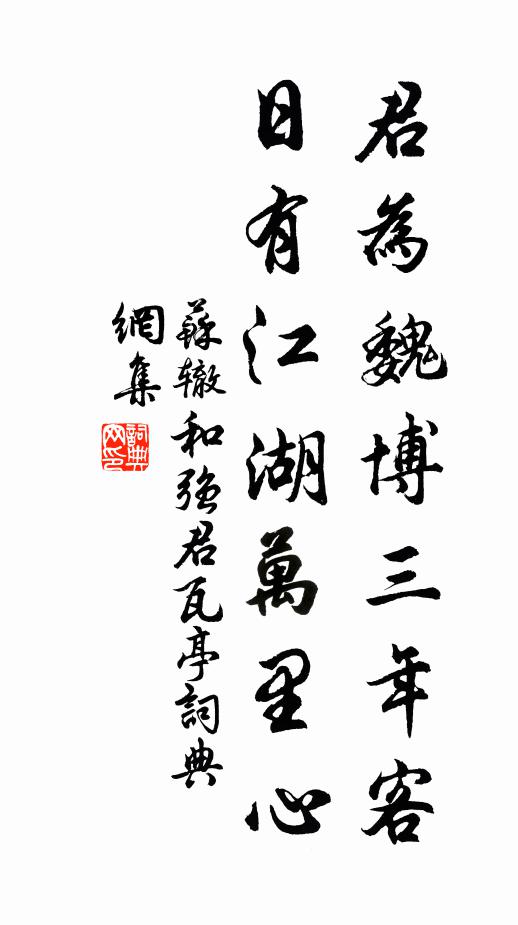 君為魏博三年客
日有江湖萬里心
蘇轍和強君瓦亭詞典
網集
詞典網印